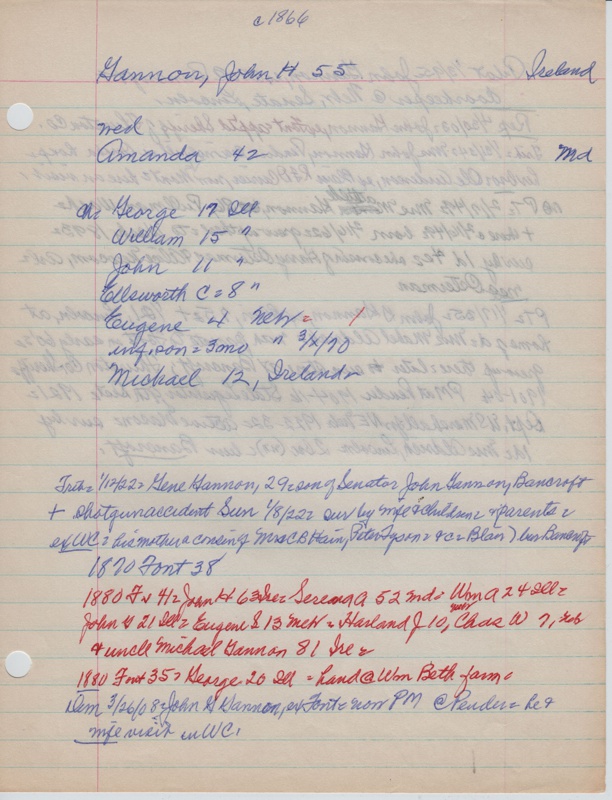 c1866
Gannon, John H 55 Ireland
wed
Amanda 42 Md
ch= George 17 Ill
William 15 "
John 11 "
Ellsworth C = 8 "
Eugene 4 Neb =
inf. son = 3mo " 3/x/70
Michael 12, Ireland=
Trib= 1/12/22= Gene Gannon, 29= son of Senator John Gannon, Bancroft
+ shotgun accident Sun 1/8/22= sur by wife & children & parents=
ex WC= his mother a cousin of Mrs CB Hain, Peter Tyson = &c= Blair) bur Bancroft
1870 Font 38
1880 F 41= John H 63 Ire= Serena A 52 Md= Wm A 24 Ill=
John H 21 Ill= Eugene S 13 Neb= Harland J 10, Neb Chas W 7, Neb
& uncle Michael Gannon 81 Ire=
1880 Font 35= George 20 Ill = hand @ Wm Beth farm=
Dem 3/26/08= John H Gannon, ex Font= now PM @ Pender= he &
wife visit in WC.